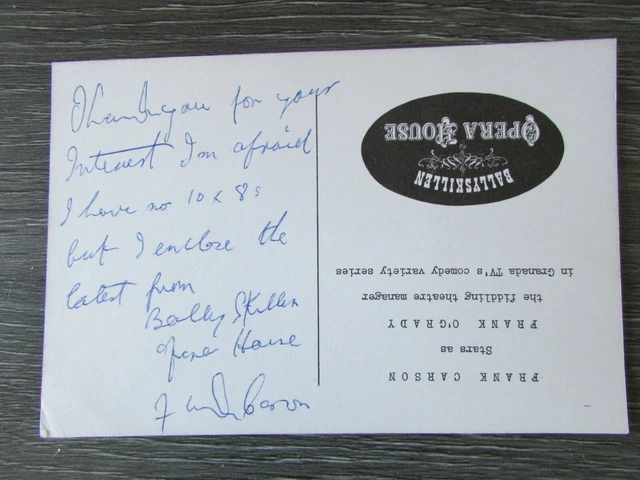 Thankyou for your
Interest I'm afraid
I have no 10 x 8s
but I enclose the
latest from
Bally Skillen
Opera House
Frank Carson
FRANK CARSON
Stars as
FRANK O'GRADY
the fiddling theatre manager
in Granada TV's comedy variety series
BALLYSKILLEN
OPERA HOUSE